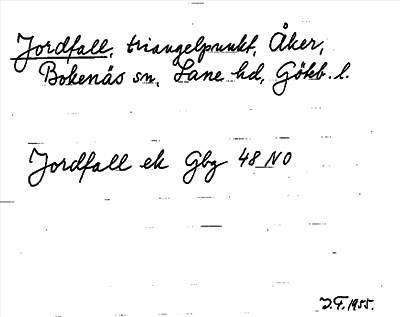 Jordfall, triangelpunkt, Åker,
Bokenäs sn, Lane hd, Götéb. l.
Jordfall ek Gbg 48 NO
J.F. 1955.